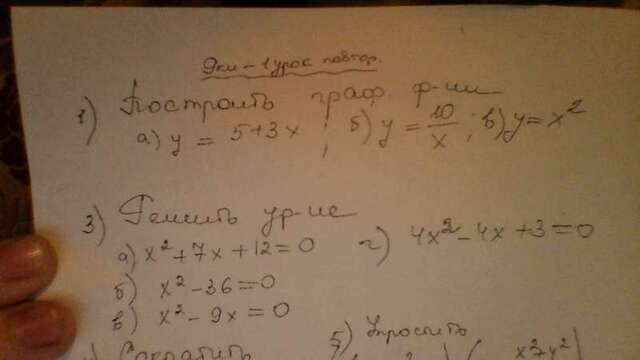 9кл - 1 урок повтор.
1) Построить граф. ф-ии
а) y = 5+3x ; б) y = 10/x ; в) y = x²
3) Решить ур-ие
а) x² + 7x + 12 = 0 г) 4x² - 4x + 3 = 0
б) x² - 36 = 0
в) x² - 9x = 0
5) Упростить
Сократить x²-y²